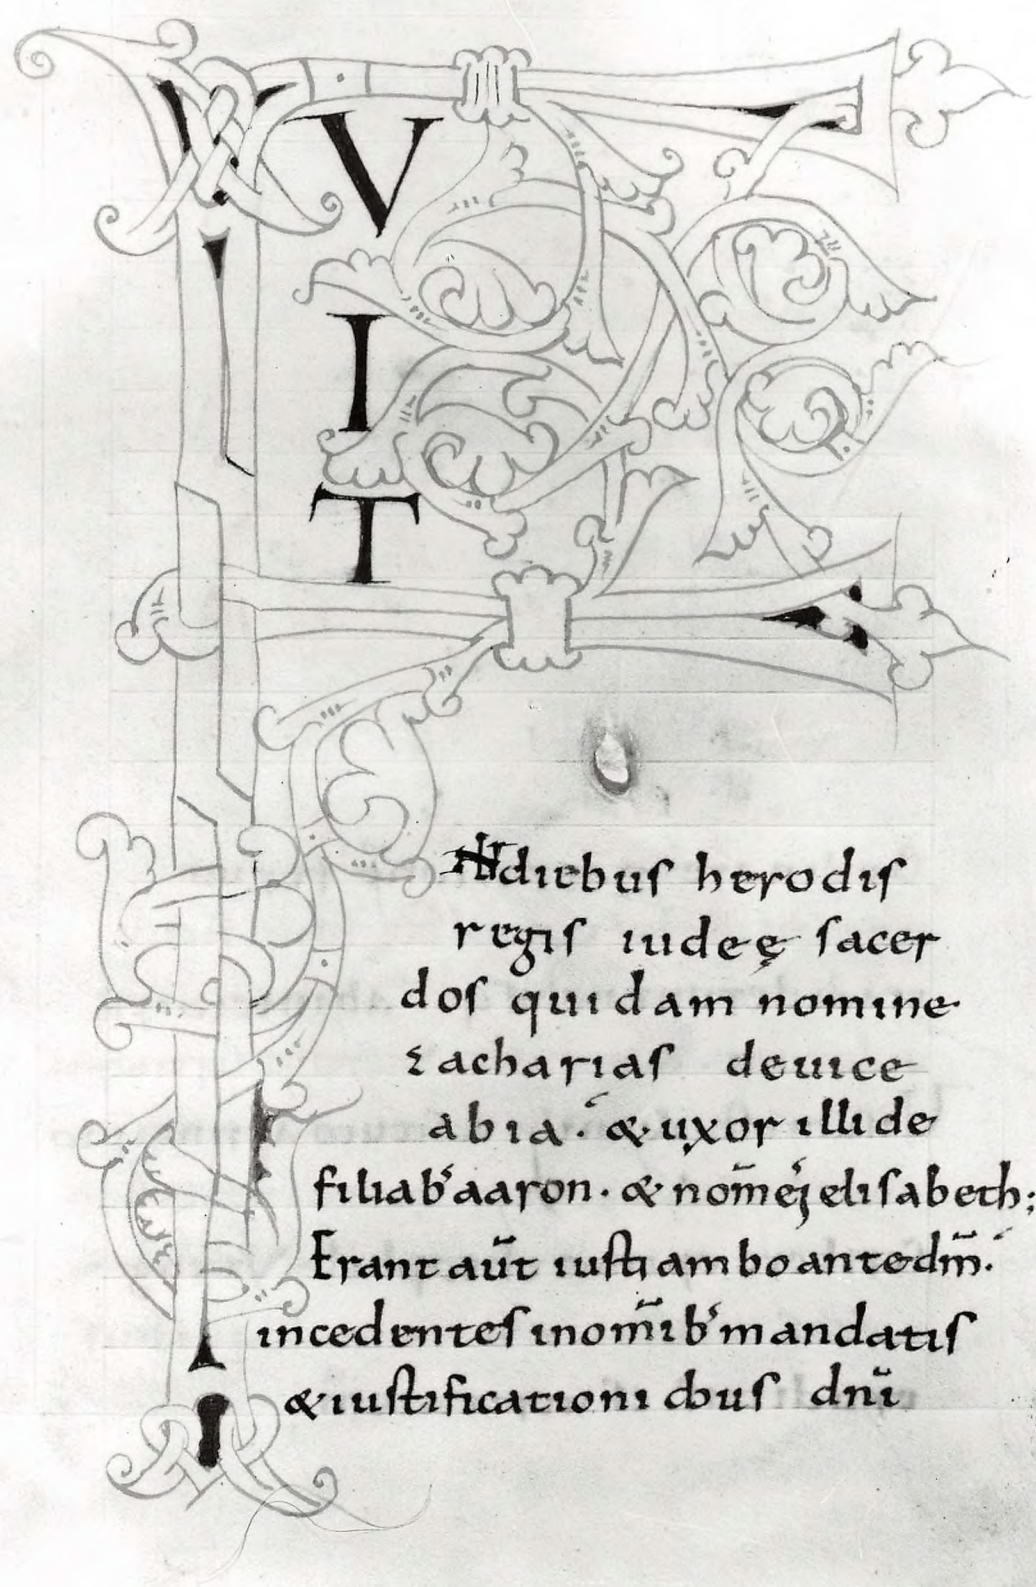 F
V
I
T
INdiebus herodis
regis iudeę sacer
dos quidam nomine
zacharias deuice
abia· & uxor illi de
filiab' aaron· & nom̄ ei' elisabeth;
Erant aūt iusti ambo ante dm̄·
incedentes in om̄ib' mandatis
& iustificationibus dn̄i